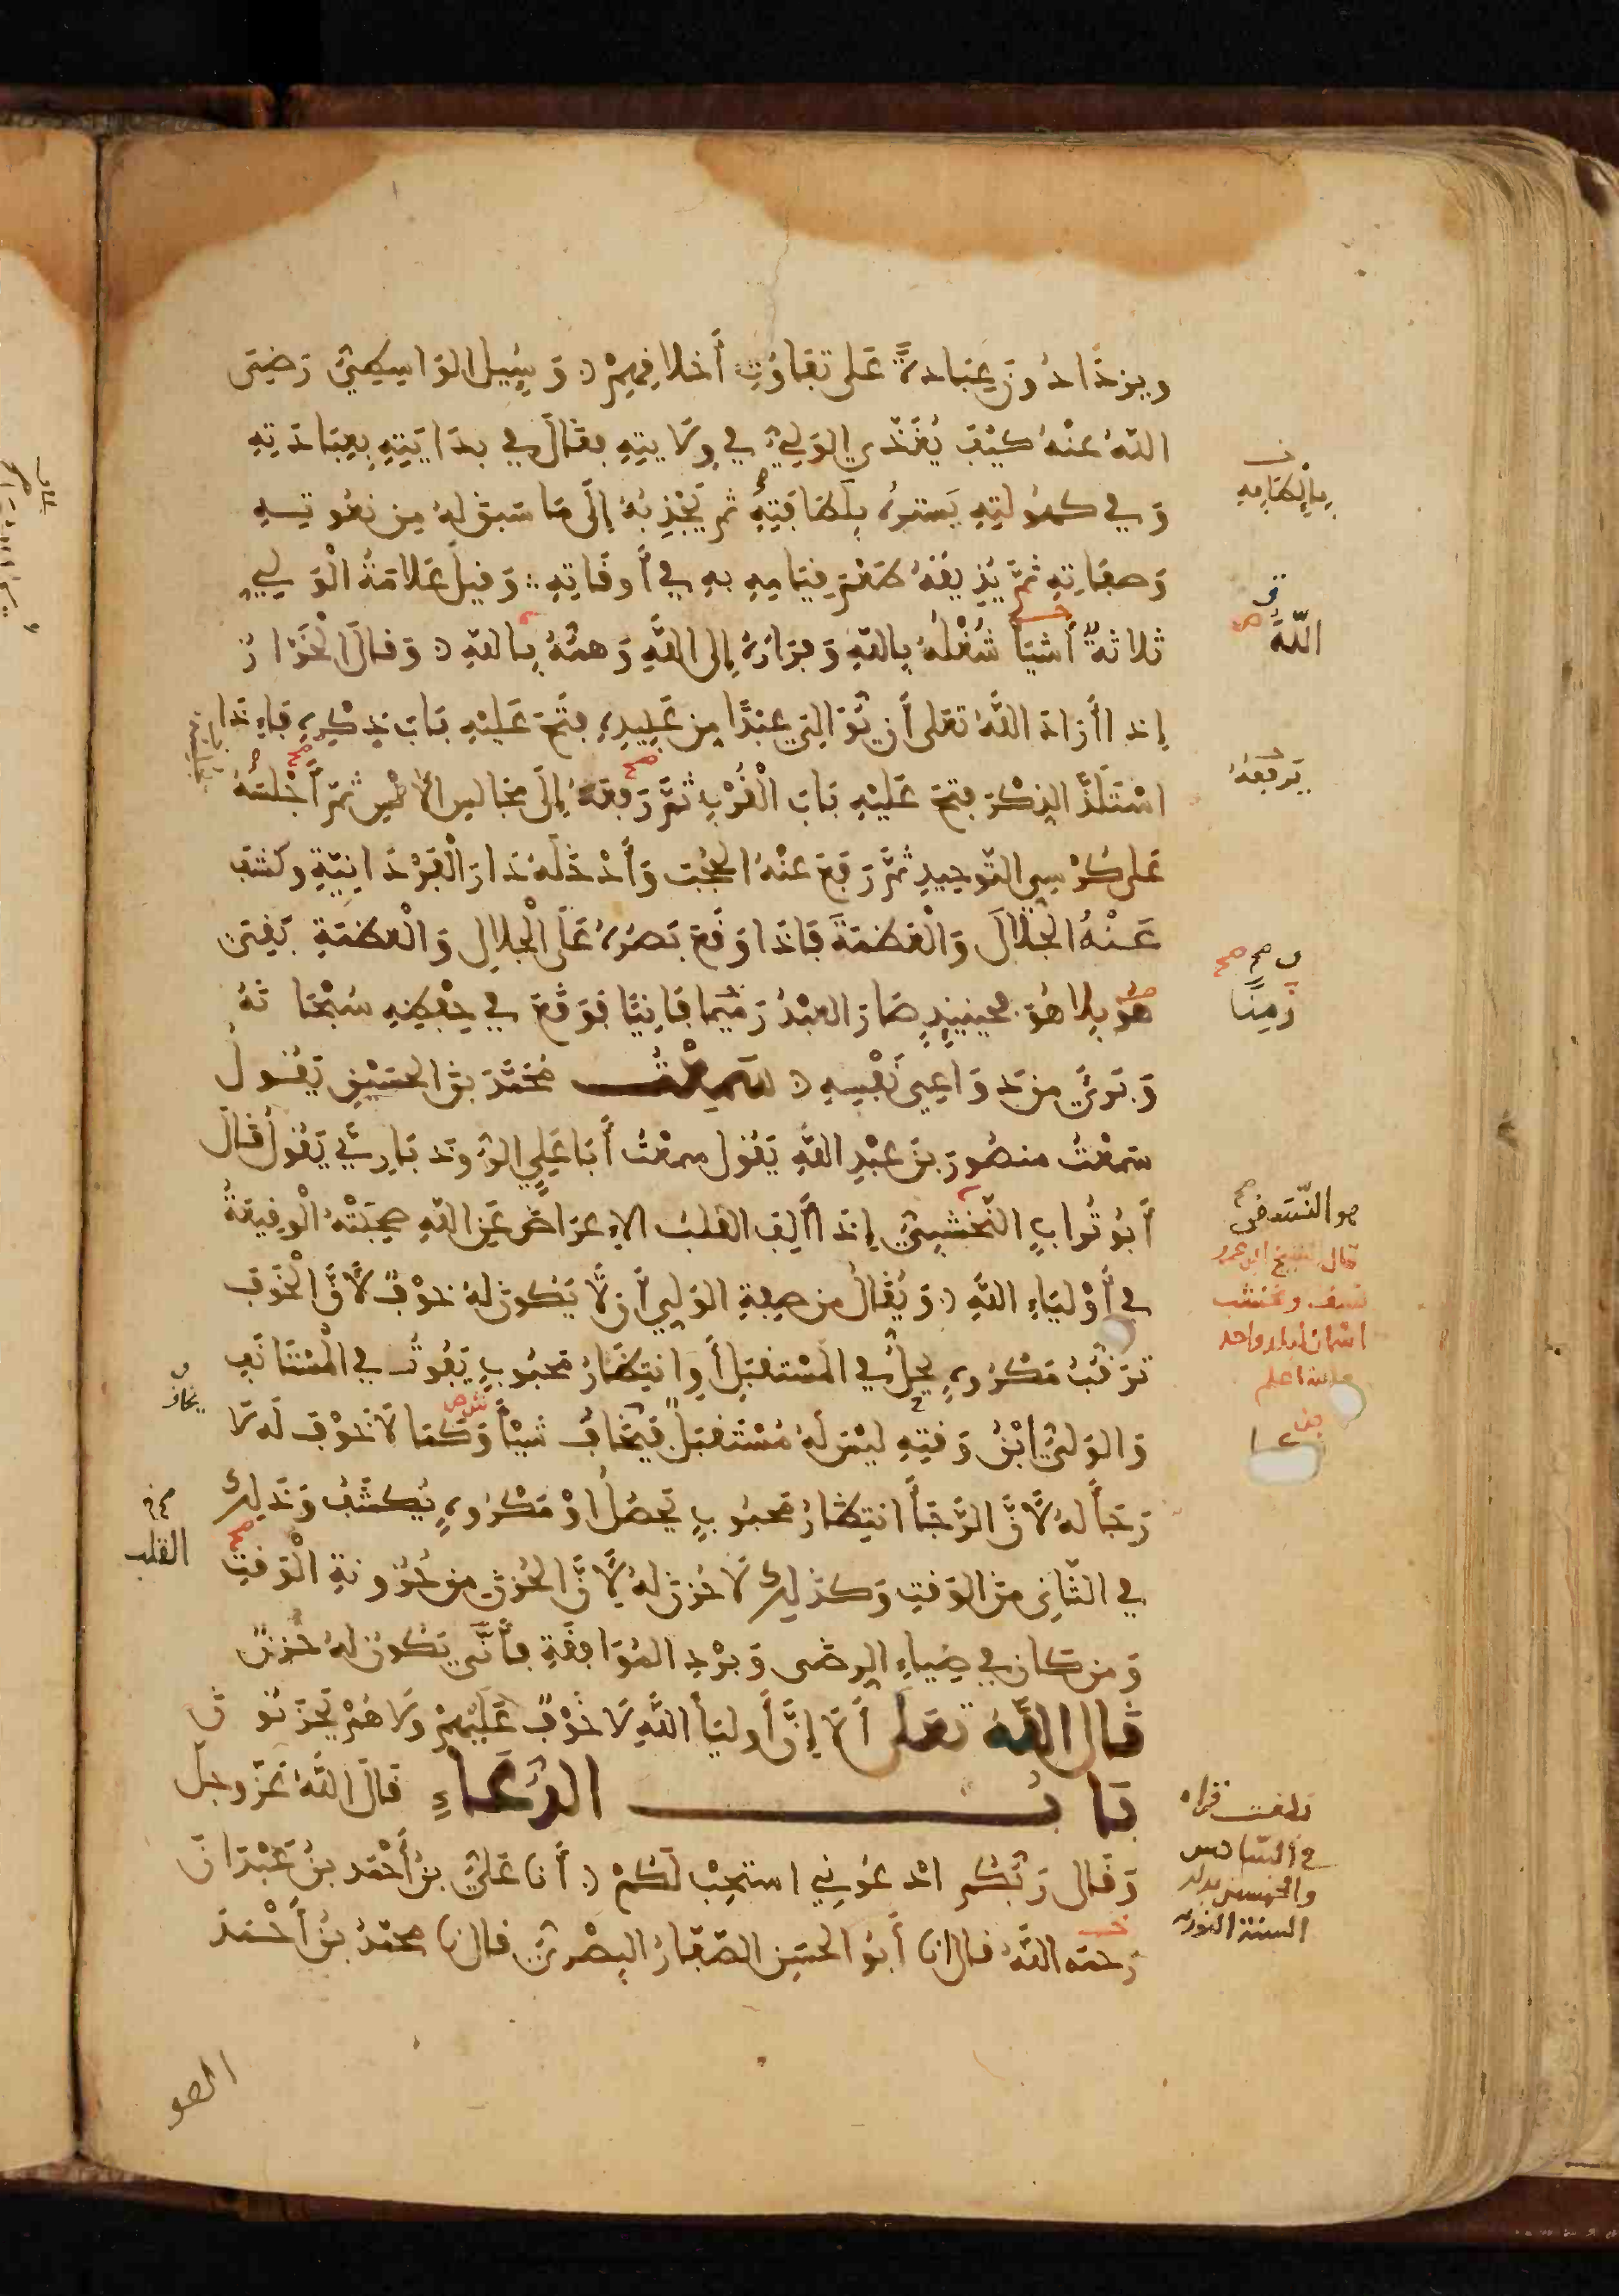 ويزدَادُونَ عِبَادةً عَلى تفاوُتِ أخلاقِهِمْ وَسُئِل الوَاسِطِيُّ رَضِيَ
اللهُ عنْهُ كيْفَ يُغَذَّى الوَلِيُّ في وِلَايتِهِ فقالَ في بدَايَتِهِ بِعِبَادَتِهِ
وَفي كهُولتِهِ يَسترُهُ بلَطَافَتِهِ ثم يَجْذِبُهُ إلَى مَا سَبقَ لهُ مِن نعُوتِهِ
وَصِفَاتِهِ ثمَّ يُذِيقُهُ طَعْمَ قيَامِهِ بهِ في أوقَاتِهِ وَقيلَ عَلامَةُ الْوَلِيِّ
ثلاثةٌ أشيَا شُغْلُهُ بِاللهِ وَفِرَارُهُ إلى اللهِ وَهمُّهُ بِاللهِ وَقالَ الْخَرَّازُ
إذا أرَادَ اللهُ تعَلى أن يُوَالِيَ عبْدًا مِن عَبِيدِهِ فتَحَ عَليْهِ بَابَ ذِكْرِهِ فَإِذَا
اسْتَلَذَّ الذِكْرَ فتحَ عَليْهِ بَابَ الْقُرْبِ ثمَّ رَفعَهُ إلَى مجَالِسِ الأُنْسِ ثمَّ أجْلَسَهُ
عَلى كُرْسِي التَّوحِيدِ ثمَّ رَفعَ عنْهُ الحُجُبَ وَأدْخَلَهُ دَارَ الْفَرْدَانِيَّةِ وكشفَ
عَنْهُ الجَلَالَ وَالْعَظمَةَ فَإذَا وَقعَ بَصَرُهُ عَلَى الْجلالِ وَالْعظمَةِ بَقِيَ
هُوَ بِلا هُوَ فحِينئِذٍ صَارَ العبْدُ زَمِنًا فَانِيًا فوَقعَ في حِفْظِهِ سُبْحَانهُ
وَبَرِئَ مِن دَوَاعِي نَفْسِهِ سَمِعْتُ مُحَمَّدَ بنَ الحسَيْنِ يَقُولُ
سَمعْتُ منصُورَ بنَ عبْدِ اللهِ يَقُول سمعْتُ أبَا عَلِي الرُّوذبَارِيَّ يَقُول قالَ
أبُو تُرابٍ النَّخشبِيُّ إذَا ألِفَ القلبُ الإعرَاضَ عَنِ اللهِ صَحِبَتْهُ الْوقِيعَةُ
في أوْلِيَاءِ اللهِ وَيُقَالُ من صِفةِ الوَلِيِّ أن لَّا يَكُونَ لهُ خوْفٌ لأَنَّ الْخَوفَ
تَرَقُّبُ مَكْرُوهٍ يحِلُّ في المُسْتقبَلِ أو انتِظَارُ مَحبُوبٍ يَفُوتُ في الْمُسْتَأنَفِ
وَالوَلِيُّ ابْنُ وَقتِهِ ليْسَ لهُ مُسْتَقبَلٌ فيَخَافُ شيْأً وَكمَا لَا خَوْفَ لَه لَا
رَجَآ لهُ لأَنَّ الرَّجَآ انتِظَارُ مَحبُوبٍ يَحصُلُ أوْ مَكْرُوهٍ يُكشَفُ وَذَلِكَ
في الثَّانِى مِنَ الوَقتِ وَكذلِكَ لَا حُزنَ لهُ لِأَنَّ الحُزنَ مِن حُزُونةِ الْوَقتِ
وَمن كانَ في ضِيَاءِ الرِضَى وَبرْدِ المُوَافقَةِ فأنَّى يَكُونُ لهُ حُزنٌ
قال اللهُ تعَلى ألَا إنَّ أوليَآ اللهِ لَا خوْفٌ عَليْهِمْ ولَا هُمْ يَحْزنُونَ
بَابُ الدُّعَاءِ قالَ اللهُ عَزَّ وجلَّ
وَقَال رَبُّكُم ادْعُونِي استجِبْ لَكُمْ أنا عَليُّ بنُ أحْمَد بنِ عَبْدَانَ
رَحمَه اللهُ قال انا أبُو الحسَين الصَّفَّارُ البصْرِيُّ قال نا محمّدُ بنُ أحْمَدَ
الله
يَرفعُهُ
زَمِنًا
هو النَّسَفى
قال الشيخ ابو عمرو
نسف ونخشب
اسمان لبلد واحد
والله اعلم
يخاف
القلب
بلغت قراه
في السَّادس
والخمسين